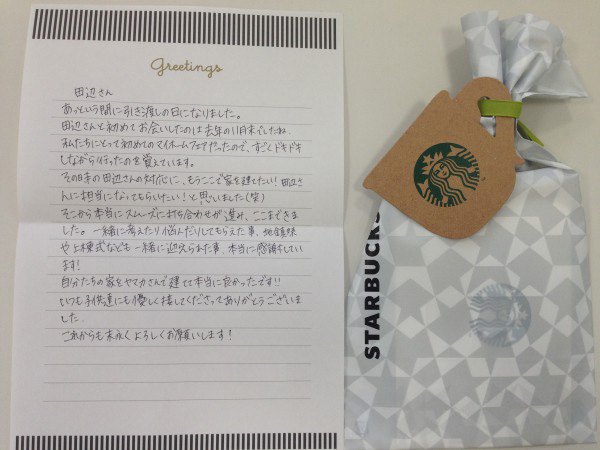 Greetings
田辺さん
あっという間に引き渡しの日になりました。
田辺さんと初めてお会いしたのは去年の11月末でしたね
私たちにとって初めてのマイホームフェアだったので、すごくドキドキ
しながら行ったのを覚えています。
その時の田辺さんの対応に、もうここで家を建てたい!田辺さ
んに担当になってもらいたい!と思いました(笑)
そこから本当にスムーズに打ち合わせが進み、ここまできま
した。一緒に考えたり悩んだりしてもらえた事、地鎮祭
や上棟式なども一緒に迎えられた事、本当に感謝してい
ます!
自分たちの家をヤマカさんで建てて本当に良かったです!!
いつも子供達にも優しく接してくださってありがとうございま
した。
これからも末永くよろしくお願いします!
STARBUCKS